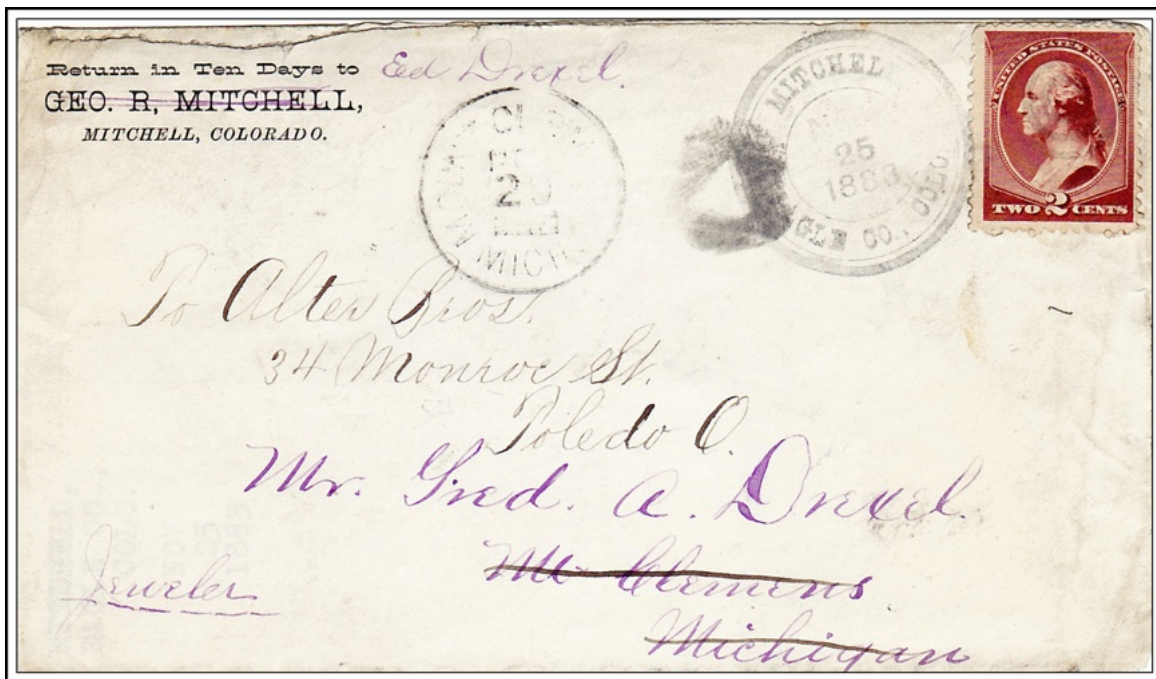 Return in Ten Days to Ed Drexel.
GEO. R. MITCHELL,
MITCHELL, COLORADO.
MITCHELL
25
1883
GLE CO., COLO
29
MICH.
UNITED STATES POSTAGE
TWO 2 CENTS
To Alter Bros.
34 Monroe St.
Toledo O.
Mr. Fred. A. Drexel.
Mt Clemens
Michigan
Jeweler